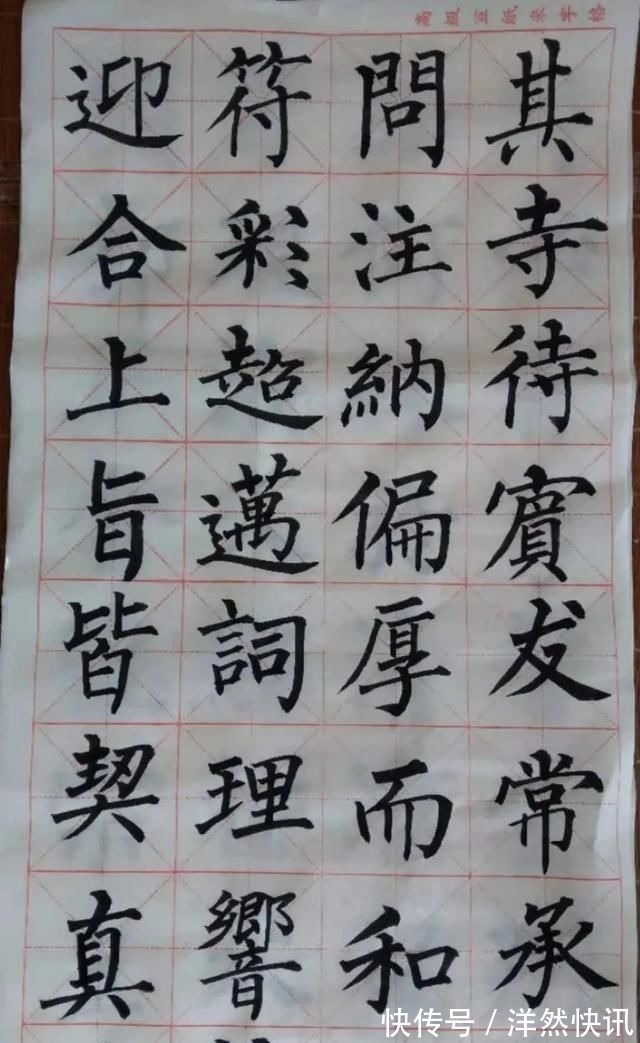 高級宣紙米字格
其寺待賓友常承
問注納偏厚而和
符彩超邁詞理響
迎合上旨皆契真
快传号 / 洋然快讯